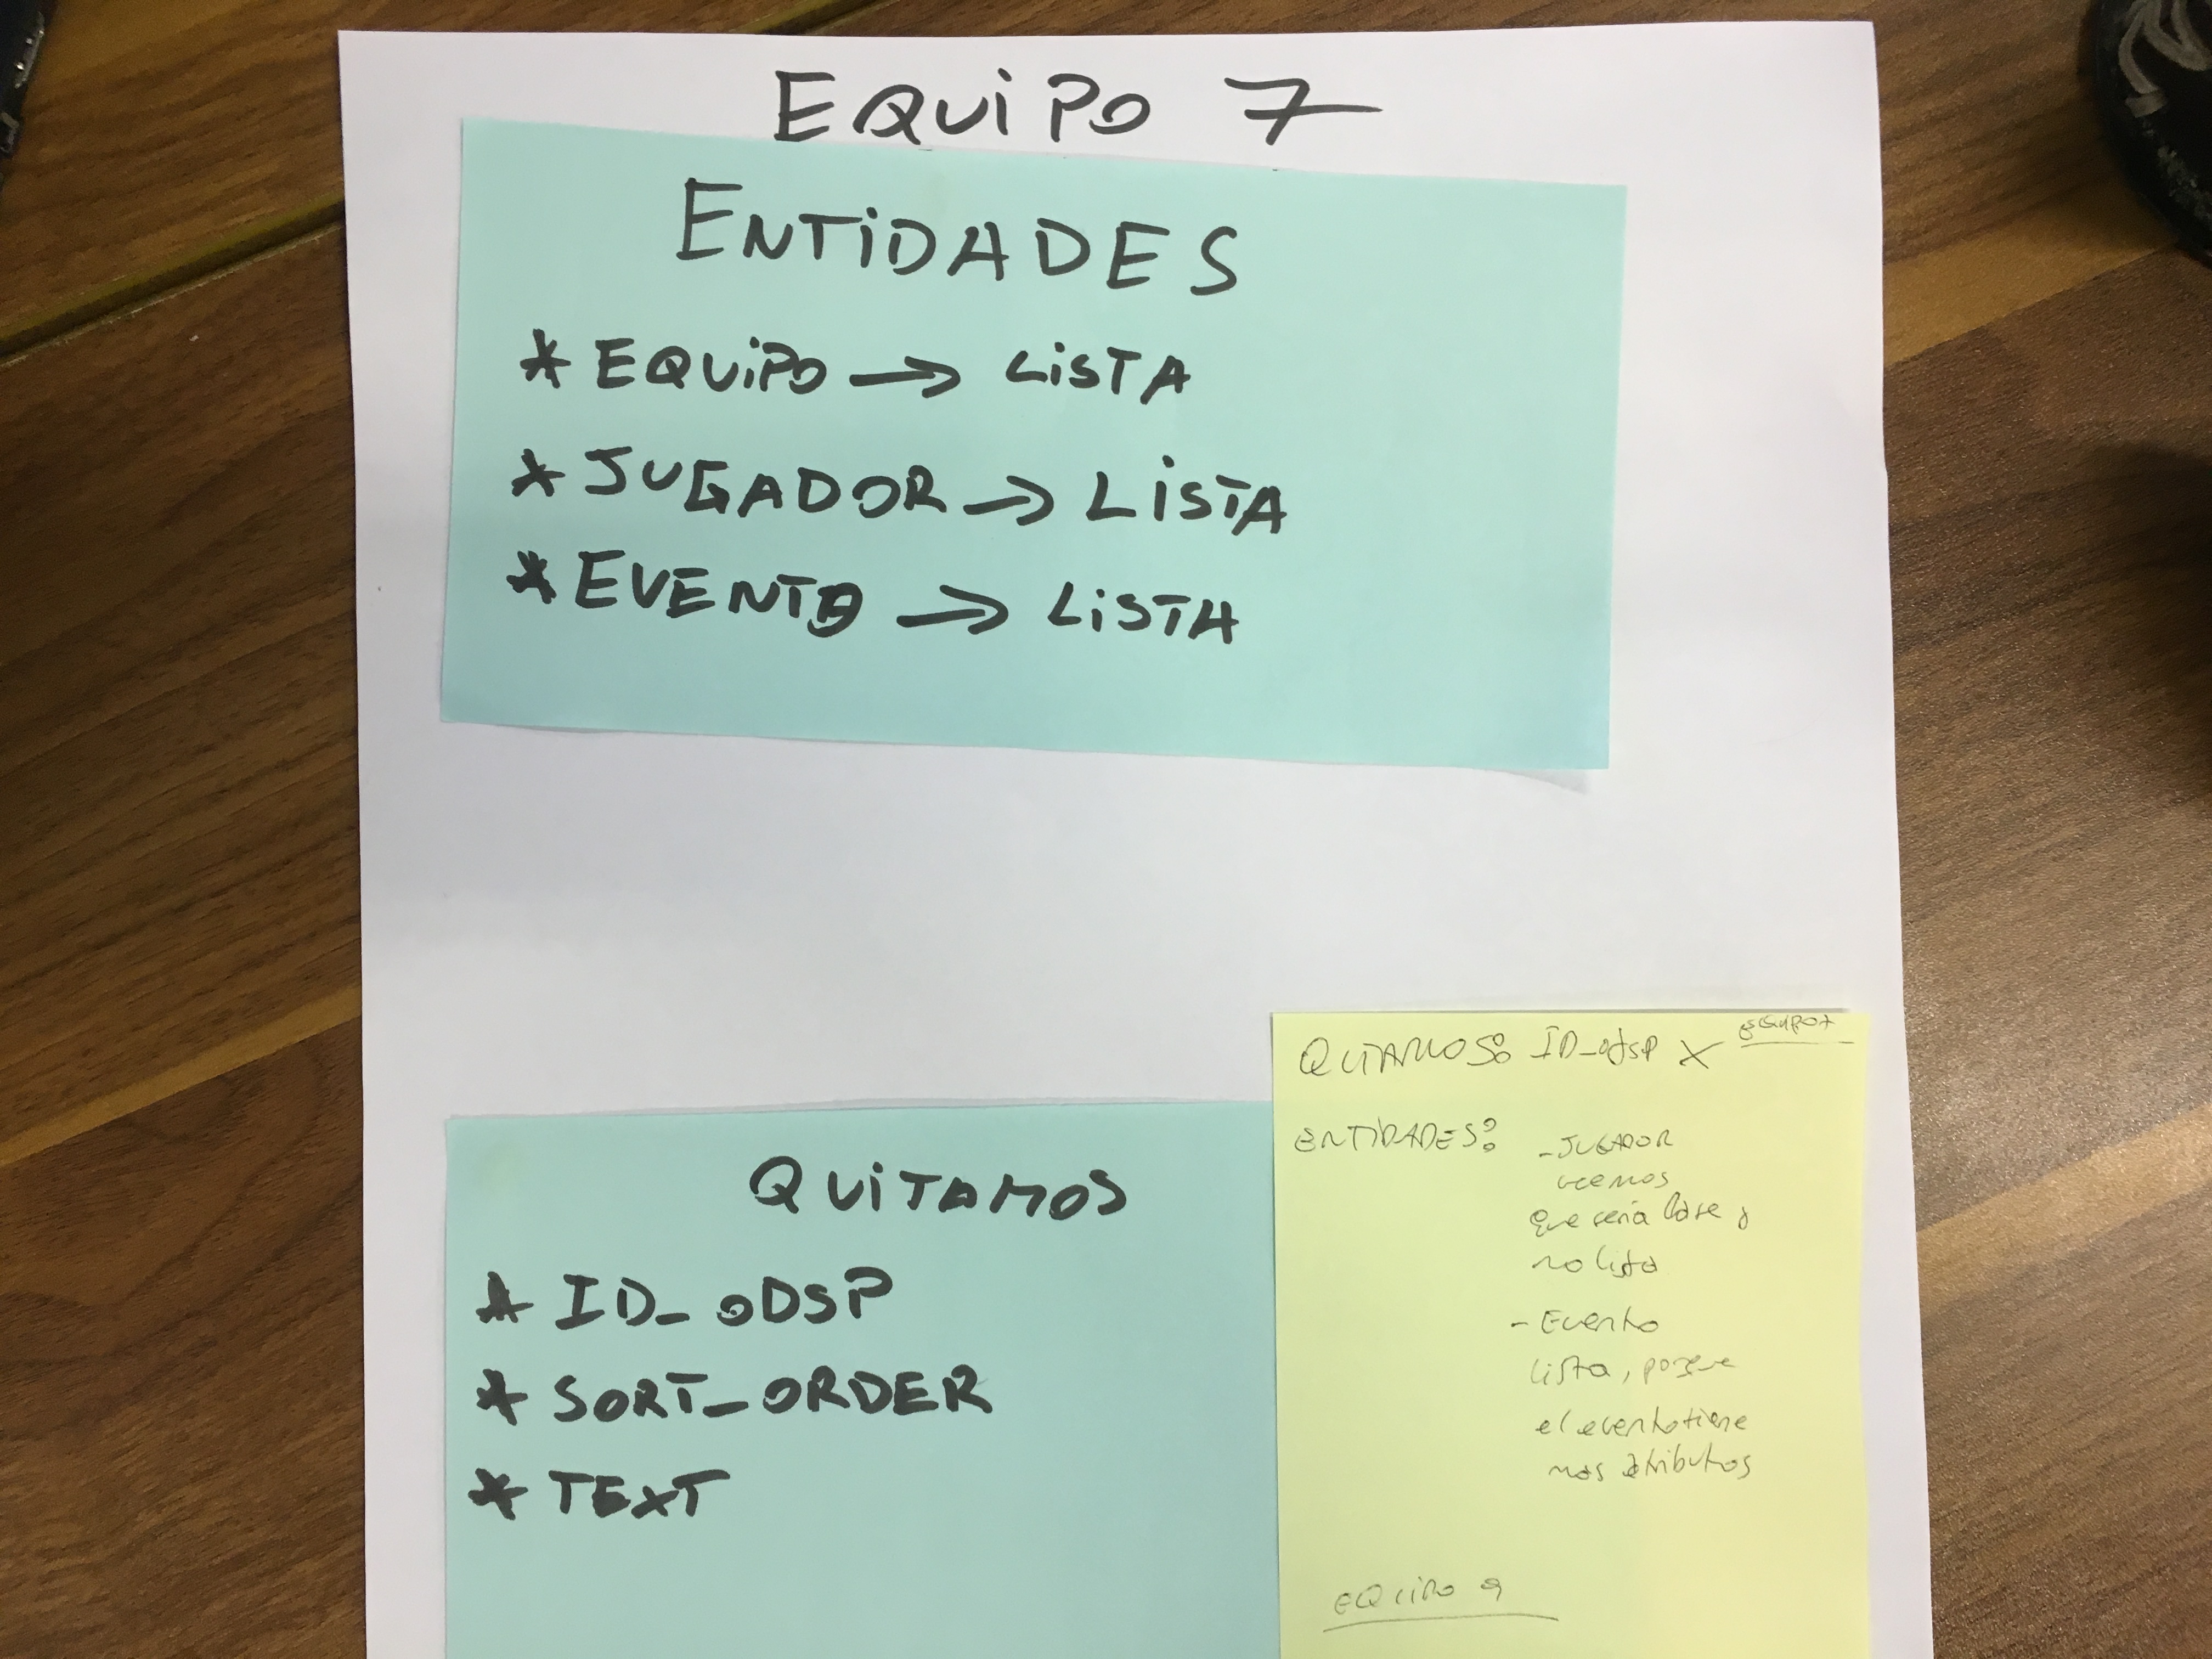 EQUIPO 7
ENTIDADES
* EQUIPO → LISTA
* JUGADOR → LISTA
* EVENTO → LISTA
QUITAMOS
* ID_ODSP
* SORT_ORDER
* TEXT
QUITAMOS: ID_odsp X
ENTIDADES:
- JUGADOR
vemos
que sería clase y
no lista
- Evento
lista, porque
el evento tiene
mas atributos
EQUIPO 9